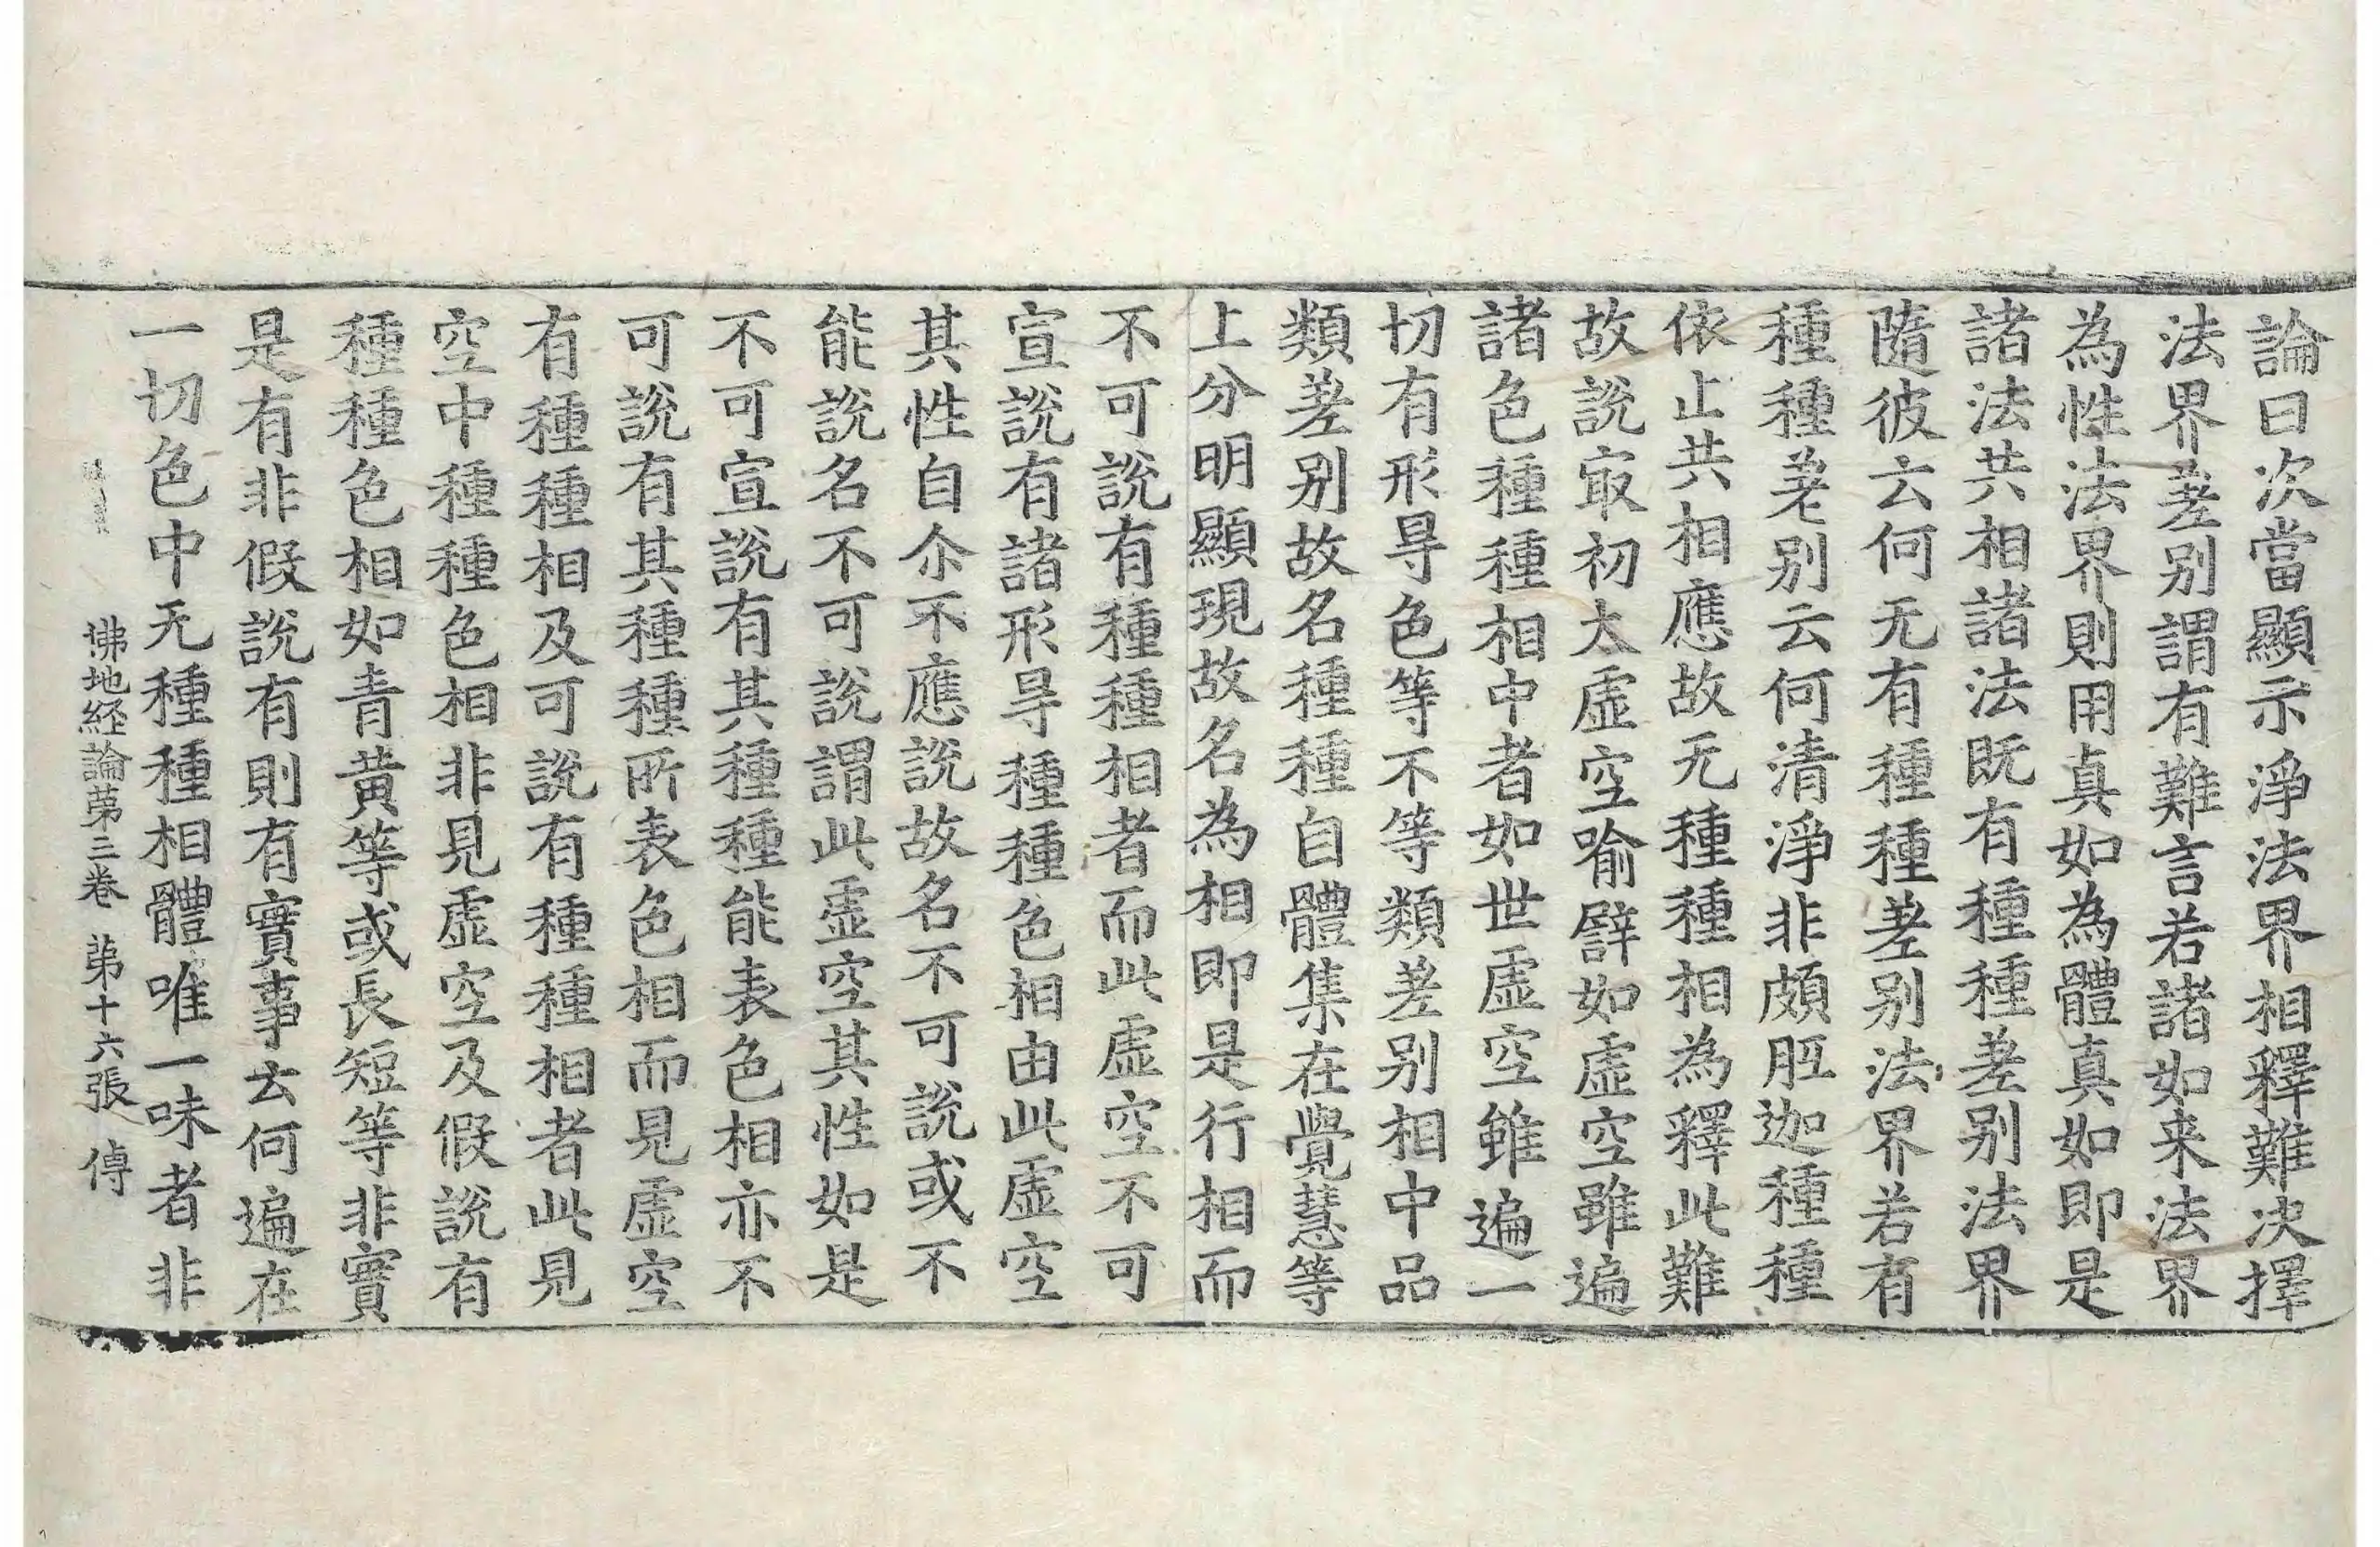 論曰次當顯示淨法界相釋難决擇
法界差别謂有難言若諸如来法界
為性法界則用真如為體真如即是
諸法共相諸法既有種種差别法界
隨彼云何无有種種差别法界若有
種種差别云何清淨非頗胝迦種種
依止共相應故无種種相為釋此難
故說㝡初太虛空喻譬如虛空雖遍
諸色種種相中者如世虛空雖遍一
切有形㝵色等不等類差别相中品
類差别故名種種自體集在覺慧等
上分明顯現故名為相即是行相而
不可說有種種相者而此虛空不可
宣說有諸形㝵種種色相由此虛空
其性自尒不應說故名不可說或不
能說名不可說謂此虛空其性如是
不可宣說有其種種能表色相亦不
可說有其種種所表色相而見虛空
有種種相及可說有種種相者此見
空中種種色相非見虛空及假說有
種種色相如青黄等或長短等非實
是有非假說有則有實事云何遍在
一切色中无種種相體唯一味者非
佛地経論苐三卷 苐十六張 傳